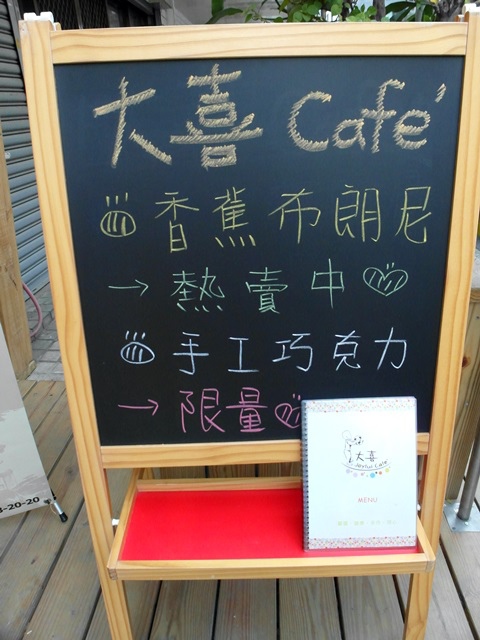 大喜 Café
香蕉布朗尼
→ 熱賣中
手工巧克力
→ 限量
大喜
Joyful Cafe
MENU
3-20-20